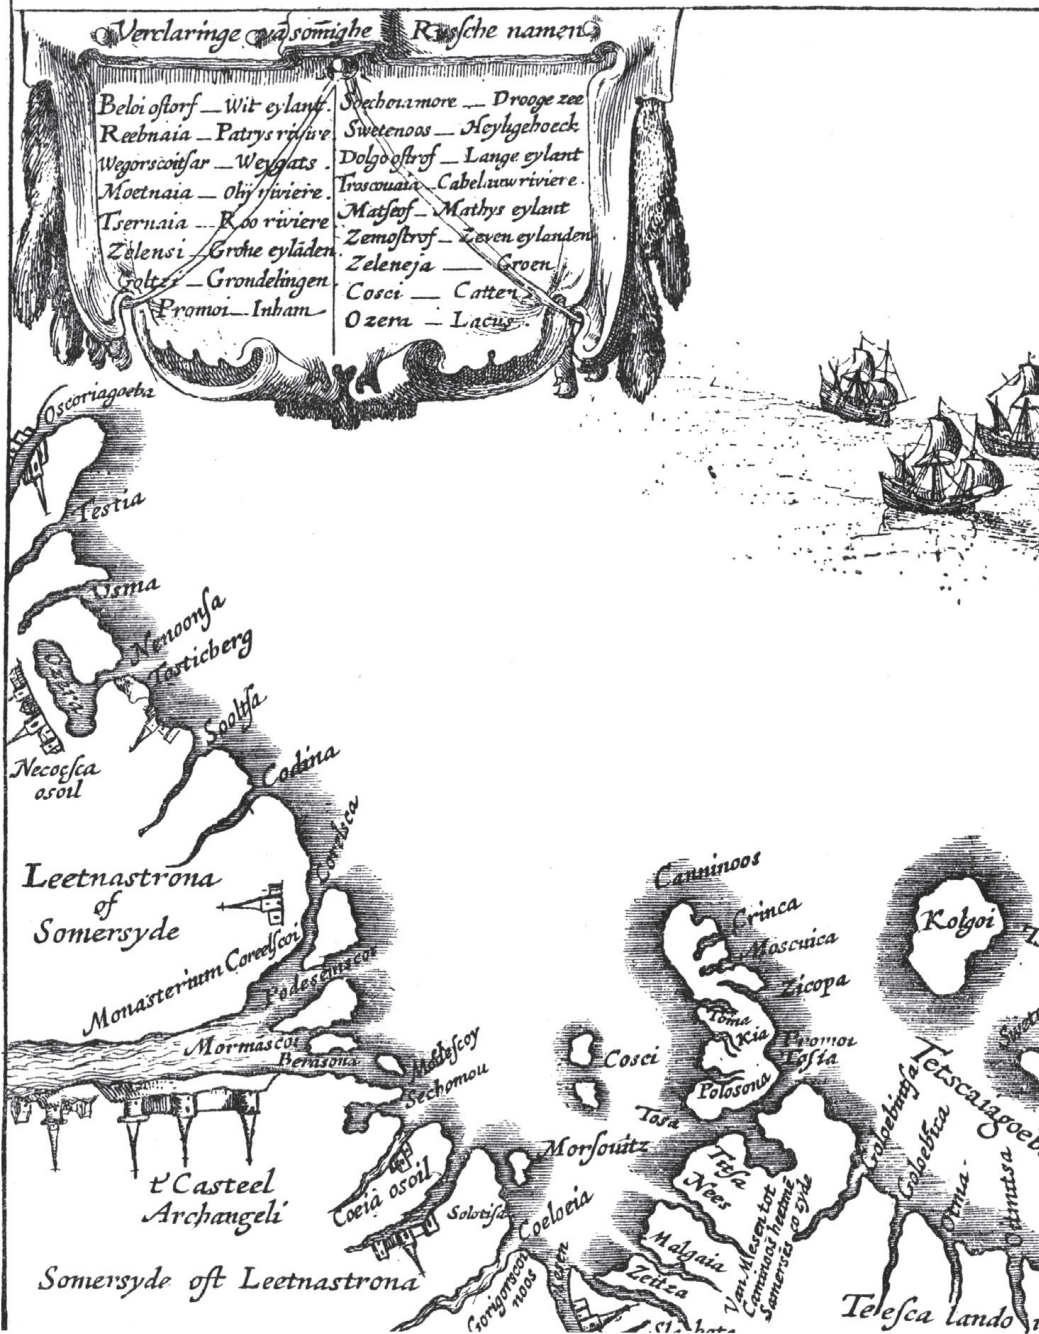 Verclaringe vā som̄ighe Russche namen
Beloi ostorf — Wit eylant.
Reebnaia — Patrys rivire
Wegorscoitsar — Weygats.
Moetnaia — Olij riviere.
Tsernaia — Roo riviere
Zelensi — Grone eylāden.
Goltzi — Grondelingen.
Promoi — Inham
Soechoumore — Drooge zee
Swetenoos — Heyligehoeck
Dolgoostrof — Lange eylant
Troscouaia — Cabelauwriviere.
Matseof — Mathys eylant
Zemostrof — Zeven eylanden
Zeleneja — Groen
Cosci — Catten
Ozera — Lacus.
Oscoriagoeba
Testia
Vsma
Nenoonsa
Tosticberg
Ozera
Necocsca
osoil
Sooltsa
Codina
Corelsca
Leetnastrona
of
Somersyde
Monasterium Coreelscoi
Podesemscoi
Mormascoi
Berasona
Modescoy
Sechomou
t' Casteel
Archangeli
Coeia osoil
Solotisa
Coeloeia
Gorigorscoi
noos
Somersyde oft Leetnastrona
Cosci
Morsouitz
Canninoos
Crinca
Moscuica
Zicopa
Toma
Kia
Promoi
Tosia
Polosona
Tosa
Tetsa
Nees
Malgaia
Zeitza
Van Mesen tot
Caminos heetmē
Samersies co zyde
Kolgoi
Swete
Tetscaiagoeb
Goloebintsa
Goloebica
Otma
Odmitsa
Telesca lando